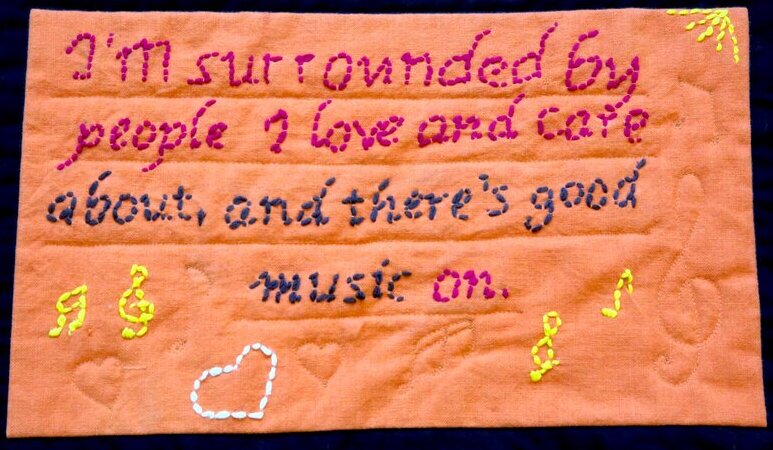 I'm surrounded by
people I love and care
about, and there's good
music on.